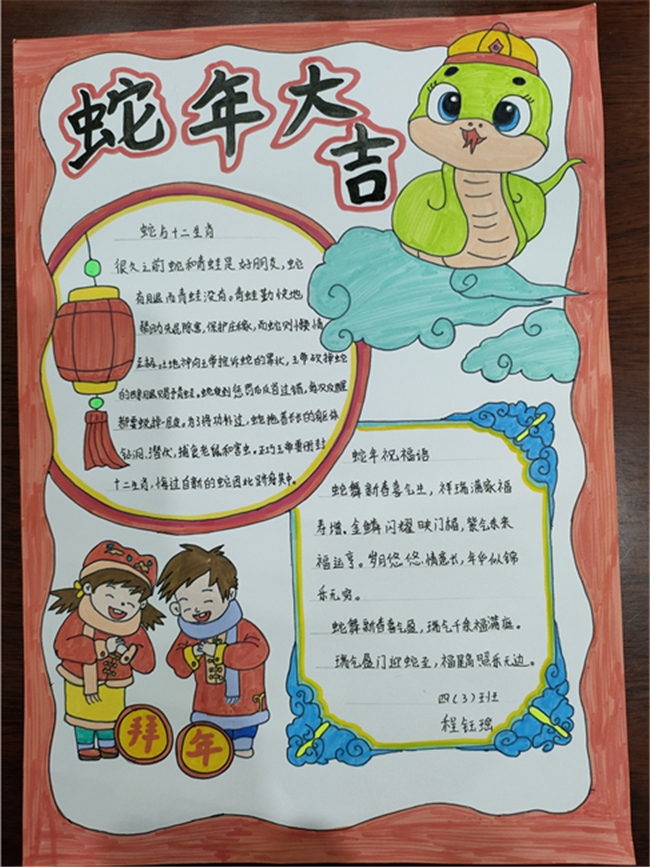 蛇年大吉
蛇与十二生肖
很久之前蛇和青蛙是好朋友,蛇
有腿而青蛙没有。青蛙勤快地
帮助人民除害,保护庄稼,而蛇则懒惰
至极。土地神向玉帝控诉蛇的罪状,玉帝砍掉蛇
的四腿赐予青蛙。蛇受到惩罚后反省过错,每次反醒
都要蜕掉一层皮。为了将功补过,蛇拖着长长的躯体
钻洞、潜伏,捕食老鼠和害虫。正巧玉帝要册封
十二生肖,悔过自新的蛇因此跻身其中。
蛇年祝福语
蛇舞新春喜气生,祥瑞满家福
寿增。金鳞闪耀映门楣,紫气东来
福运亨。岁月悠悠情意长,年华似锦
乐无穷。
蛇舞新春喜气盈,瑞气千条福满庭。
瑞气盈门迎蛇至,福星高照乐无边。
四(3)班
程钰瑶
拜年